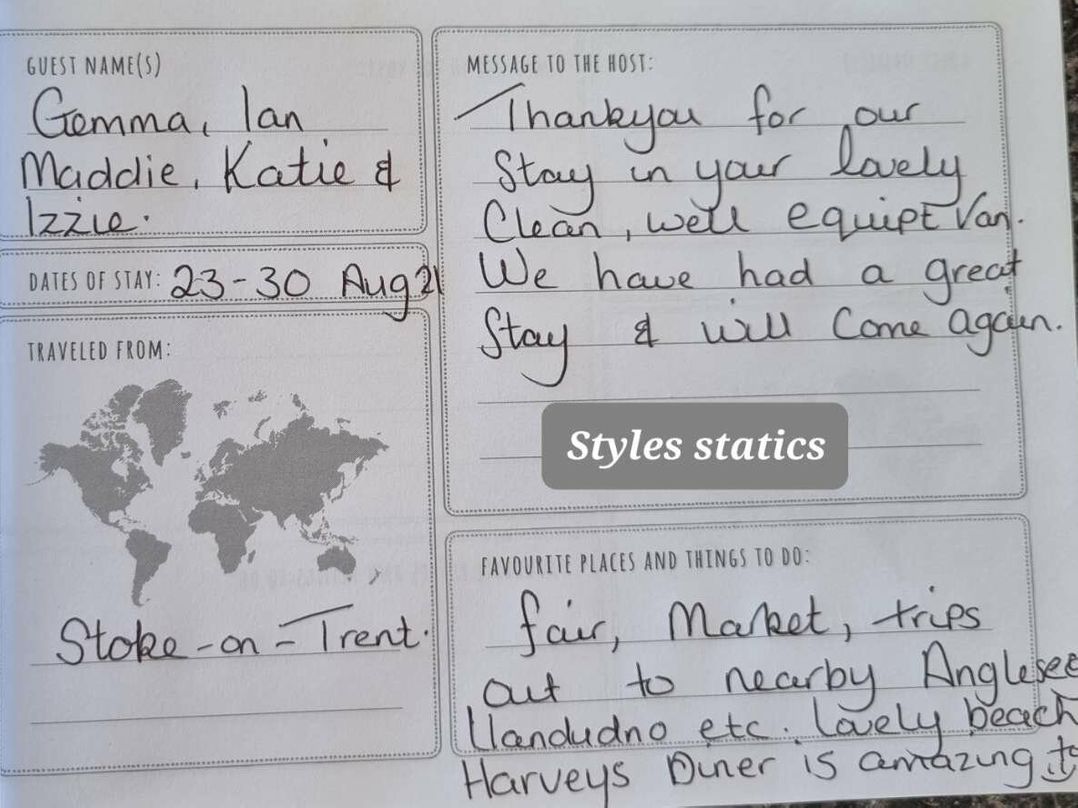 GUEST NAME(S)
Gemma, Ian
Maddie, Katie &
Izzie.
DATES OF STAY: 23-30 Aug 21
TRAVELED FROM:
Stoke-on-Trent.
MESSAGE TO THE HOST:
Thankyou for our
Stay in your lovely
Clean, well equipt Van.
We have had a great
Stay & will Come again.
Styles statics
FAVOURITE PLACES AND THINGS TO DO:
fair, Market, trips
out to nearby Anglesee
Llandudno etc. lovely beach
Harveys Diner is amazing